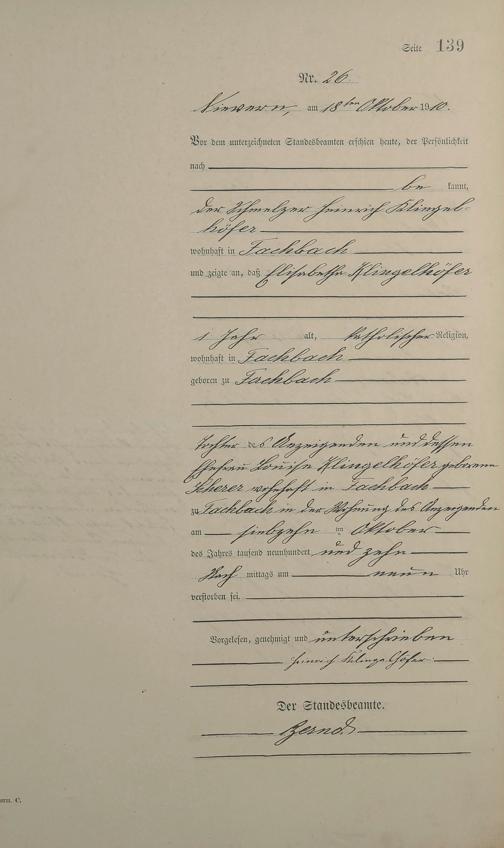 Seite 139
Nr. 26
Nievern, am 18ten Oktober 1910.
Vor dem unterzeichneten Standesbeamten erschien heute, der Persönlichkeit
nach
be kannt,
der Schmelzer Heinrich Klingel-
höfer
wohnhaft in Fachbach
und zeigte an, daß Elisabetha Klingelhöfer
1 Jahr alt, katholischer Religion,
wohnhaft in Fachbach
geboren zu Fachbach
Tochter des Anzeigenden und dessen
Ehefrau Louise Klingelhöfer geborene
Scherer wohnhaft in Fachbach
zu Fachbach in der Wohnung des Anzeigenden
am siebzehn im Oktober
des Jahres tausend neunhundert und zehn
Nach mittags um neun Uhr
verstorben sei.
Vorgelesen, genehmigt und unterschrieben
Heinrich Klingelhöfer
Der Standesbeamte.
C.